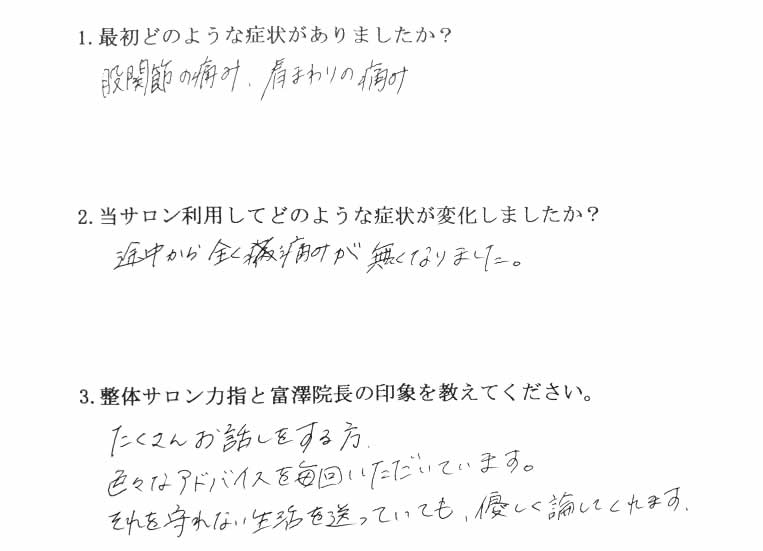 1.最初どのような症状がありましたか？
股関節の痛み、肩まわりの痛み
2.当サロン利用してどのような症状が変化しましたか？
途中から全く痛みが無くなりました。
3.整体サロン力指と富澤院長の印象を教えてください。
たくさんお話しをする方、
色々なアドバイスを毎回いただいています。
それを守れない生活を送っていても、優しく論してくれます。